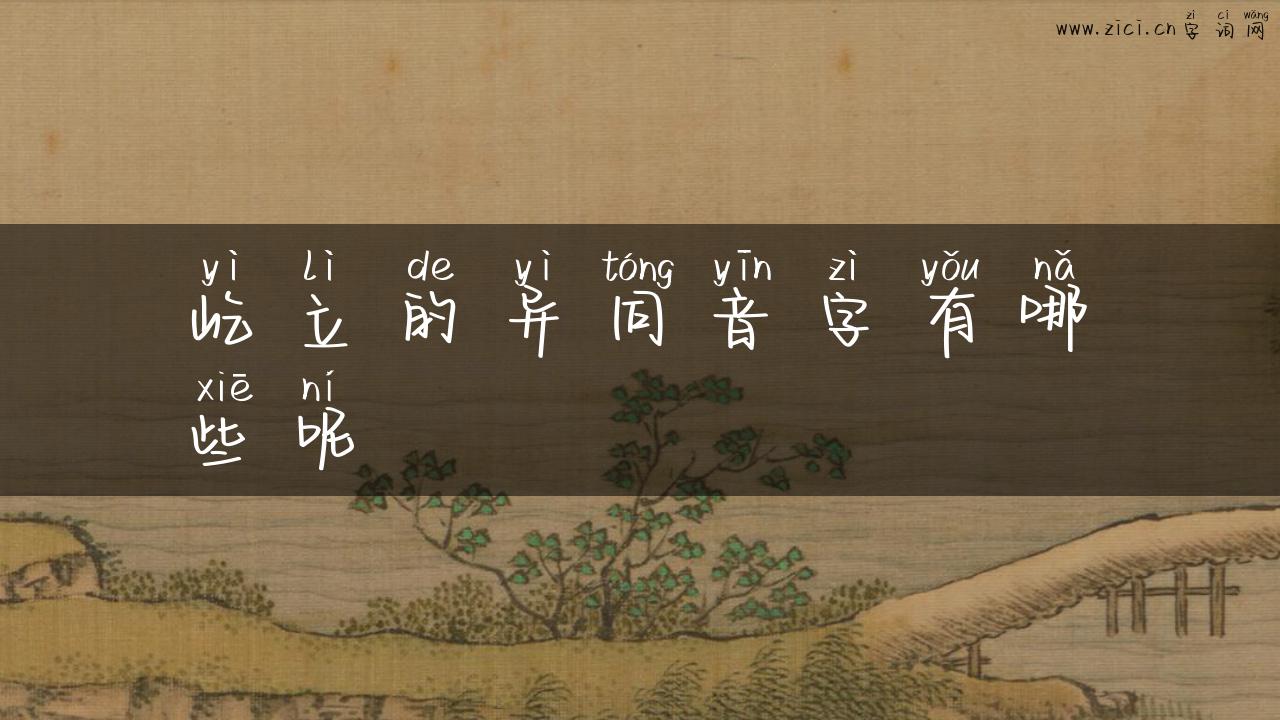 zì cí wǎng
www.zici.cn 字词网
yì lì de yì tóng yīn zì yǒu nǎ
屹立的异同音字有哪
xiē ní
些呢